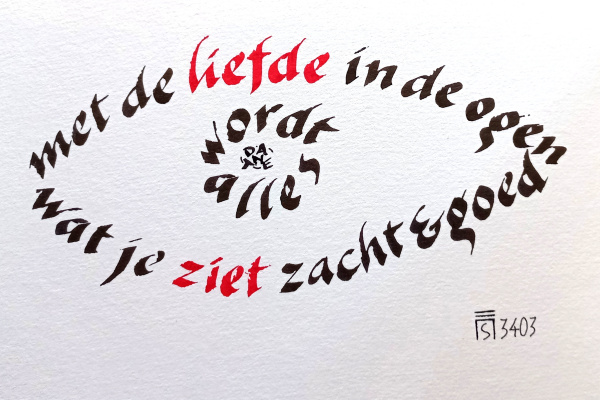 met de liefde in de ogen
wordt
DA
NE
alles
wat je ziet zacht & goed
S 3403